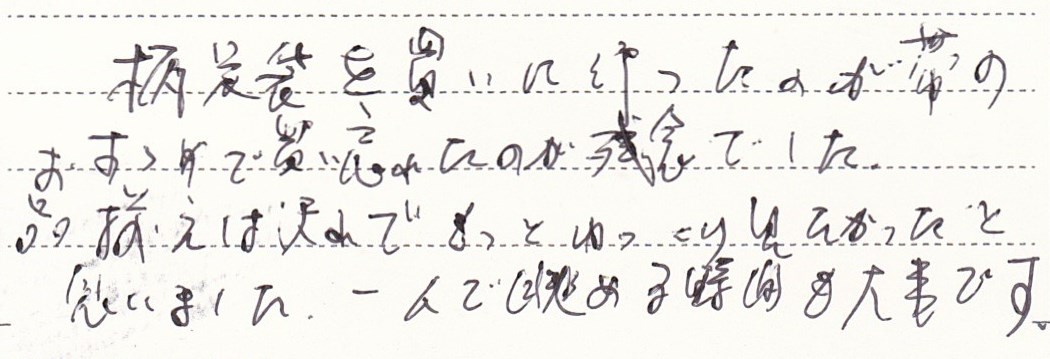 柄足袋を買いに行ったのが帯の
おすすめで買い忘れたのが残念でした。
品揃えは沢山でもっとゆっくり見たかったと
思いました。一人で眺める時間も大事です。